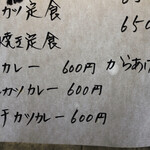 カツ定食
焼豆定食
カレー 600円
カツカレー 600円
チカツカレー 600円
650
からあげ